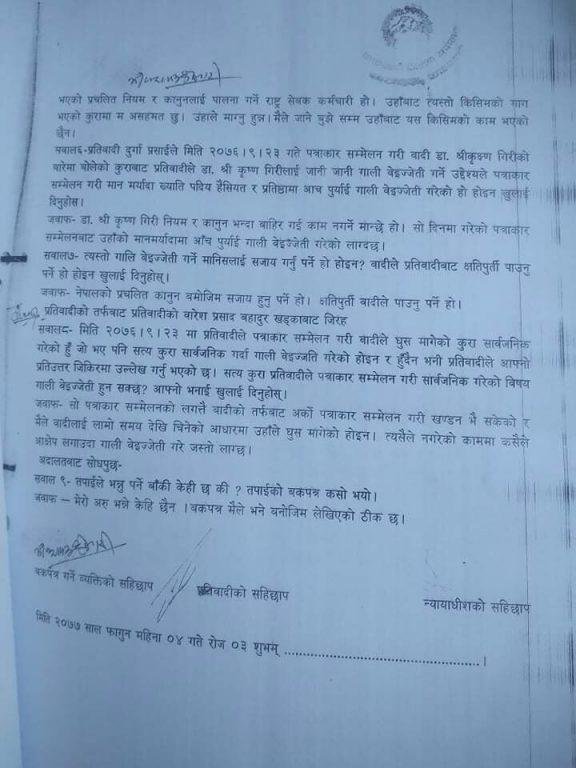 भएको प्रचलित नियम र कानुनलाई पालना गर्ने राष्ट्र सेवक कर्मचारी हो। उहाँबाट त्यस्तो किसिमको माग
भएको कुरामा म असहमत छु। उहाले माग्नु हुन्न। मैले जाने बुझे सम्म उहाँबाट यस किसिमको काम भएको
छैन।
सवाल६-प्रतिवादी दुर्गा प्रसाईले मिति २०७६।९।२३ गते पत्राकार सम्मेलन गरी वादी डा. श्रीकृष्ण गिरीको
बारेमा बोलेको कुराबाट प्रतिवादीले डा. श्री कृष्ण गिरीलाई जानी जानी गाली बेइज्जेती गर्ने उद्देश्यले पत्राकार
सम्मेलन गरी मान मर्यादा ख्याति पदिय हैसियत र प्रतिष्ठामा आच पुर्याई गाली वेइज्जेती गरेको हो होइन खुलाई
दिनुहोस।
जवाफ- डा. श्री कृष्ण गिरी नियम र कानुन भन्दा बाहिर गई काम नगर्ने मान्छे हो। सो दिनमा गरेको पत्राकार
सम्मेलनबाट उहाँको मानमर्यादामा आँच पुर्याई गाली वेइज्जेती गरेको लाग्दछ।
सवाल७- त्यस्तो गालि बेइज्जेती गर्ने मानिसलाई सजाय गर्नु पर्ने हो होइन? वादीले प्रतिवादीबाट क्षतिपुर्ती पाउनु
पर्ने हो होइन खुलाई दिनुहोस्।
जवाफ- नेपालको प्रचलित कानुन बमोजिम सजाय हुनु पर्ने हो। क्षतिपुर्ती वादीले पाउनु पर्ने हो।
प्रतिवादीको तर्फबाट प्रतिवादीको वारेश प्रसाद बहादुर खड्काबाट जिरह
सवाल८- मिति २०७६।९।२३ मा प्रतिवादीले पत्राकार सम्मेलन गरी बादीले घुस मागेको कुरा सार्वजनिक
गरेको हुँ जो भए पनि सत्य कुरा सार्वजनिक गर्दा गाली बेइज्जति गरेको होइन र हुँदैन भनी प्रतिवादीले आफ्नो
प्रतिउत्तर जिकिरमा उल्लेख गर्नु भएको छ। सत्य कुरा प्रतिवादीले पत्राकार सम्मेलन गरी सार्वजनिक गरेको विषय
गाली वेइज्जेती हुन सक्छ? आफ्नो भनाई खुलाई दिनुहोस्।
जवाफ- सो पत्राकार सम्मेलनको लगत्तै वादीको तर्फबाट अर्को पत्राकार सम्मेलन गरी खण्डन भै सकेको र
मैले वादीलाई लामो समय देखि चिनेको आधारमा उहाँले घुस मागेको होइन। त्यसैले नगरेको काममा कसैले
आक्षेप लगाउदा गाली वेइज्जेती गरे जस्तो लाग्छ।
अदालतबाट सोधपुछ-
सवाल ९- तपाईले भन्नु पर्ने बाँकी केही छ की ? तपाईको बकपत्र कसो भयो।
जवाफ – मेरो अरु भन्ने केहि छैन । बकपत्र मैले भने बमोजिम लेखिएको ठीक छ।
बकपत्र गर्ने व्यक्तिको सहिछाप प्रतिवादीको सहिछाप न्यायाधीशको सहिछाप
मिति २०७७ साल फागुन महिना ०४ गते रोज ०३ शुभम् ......................................................।